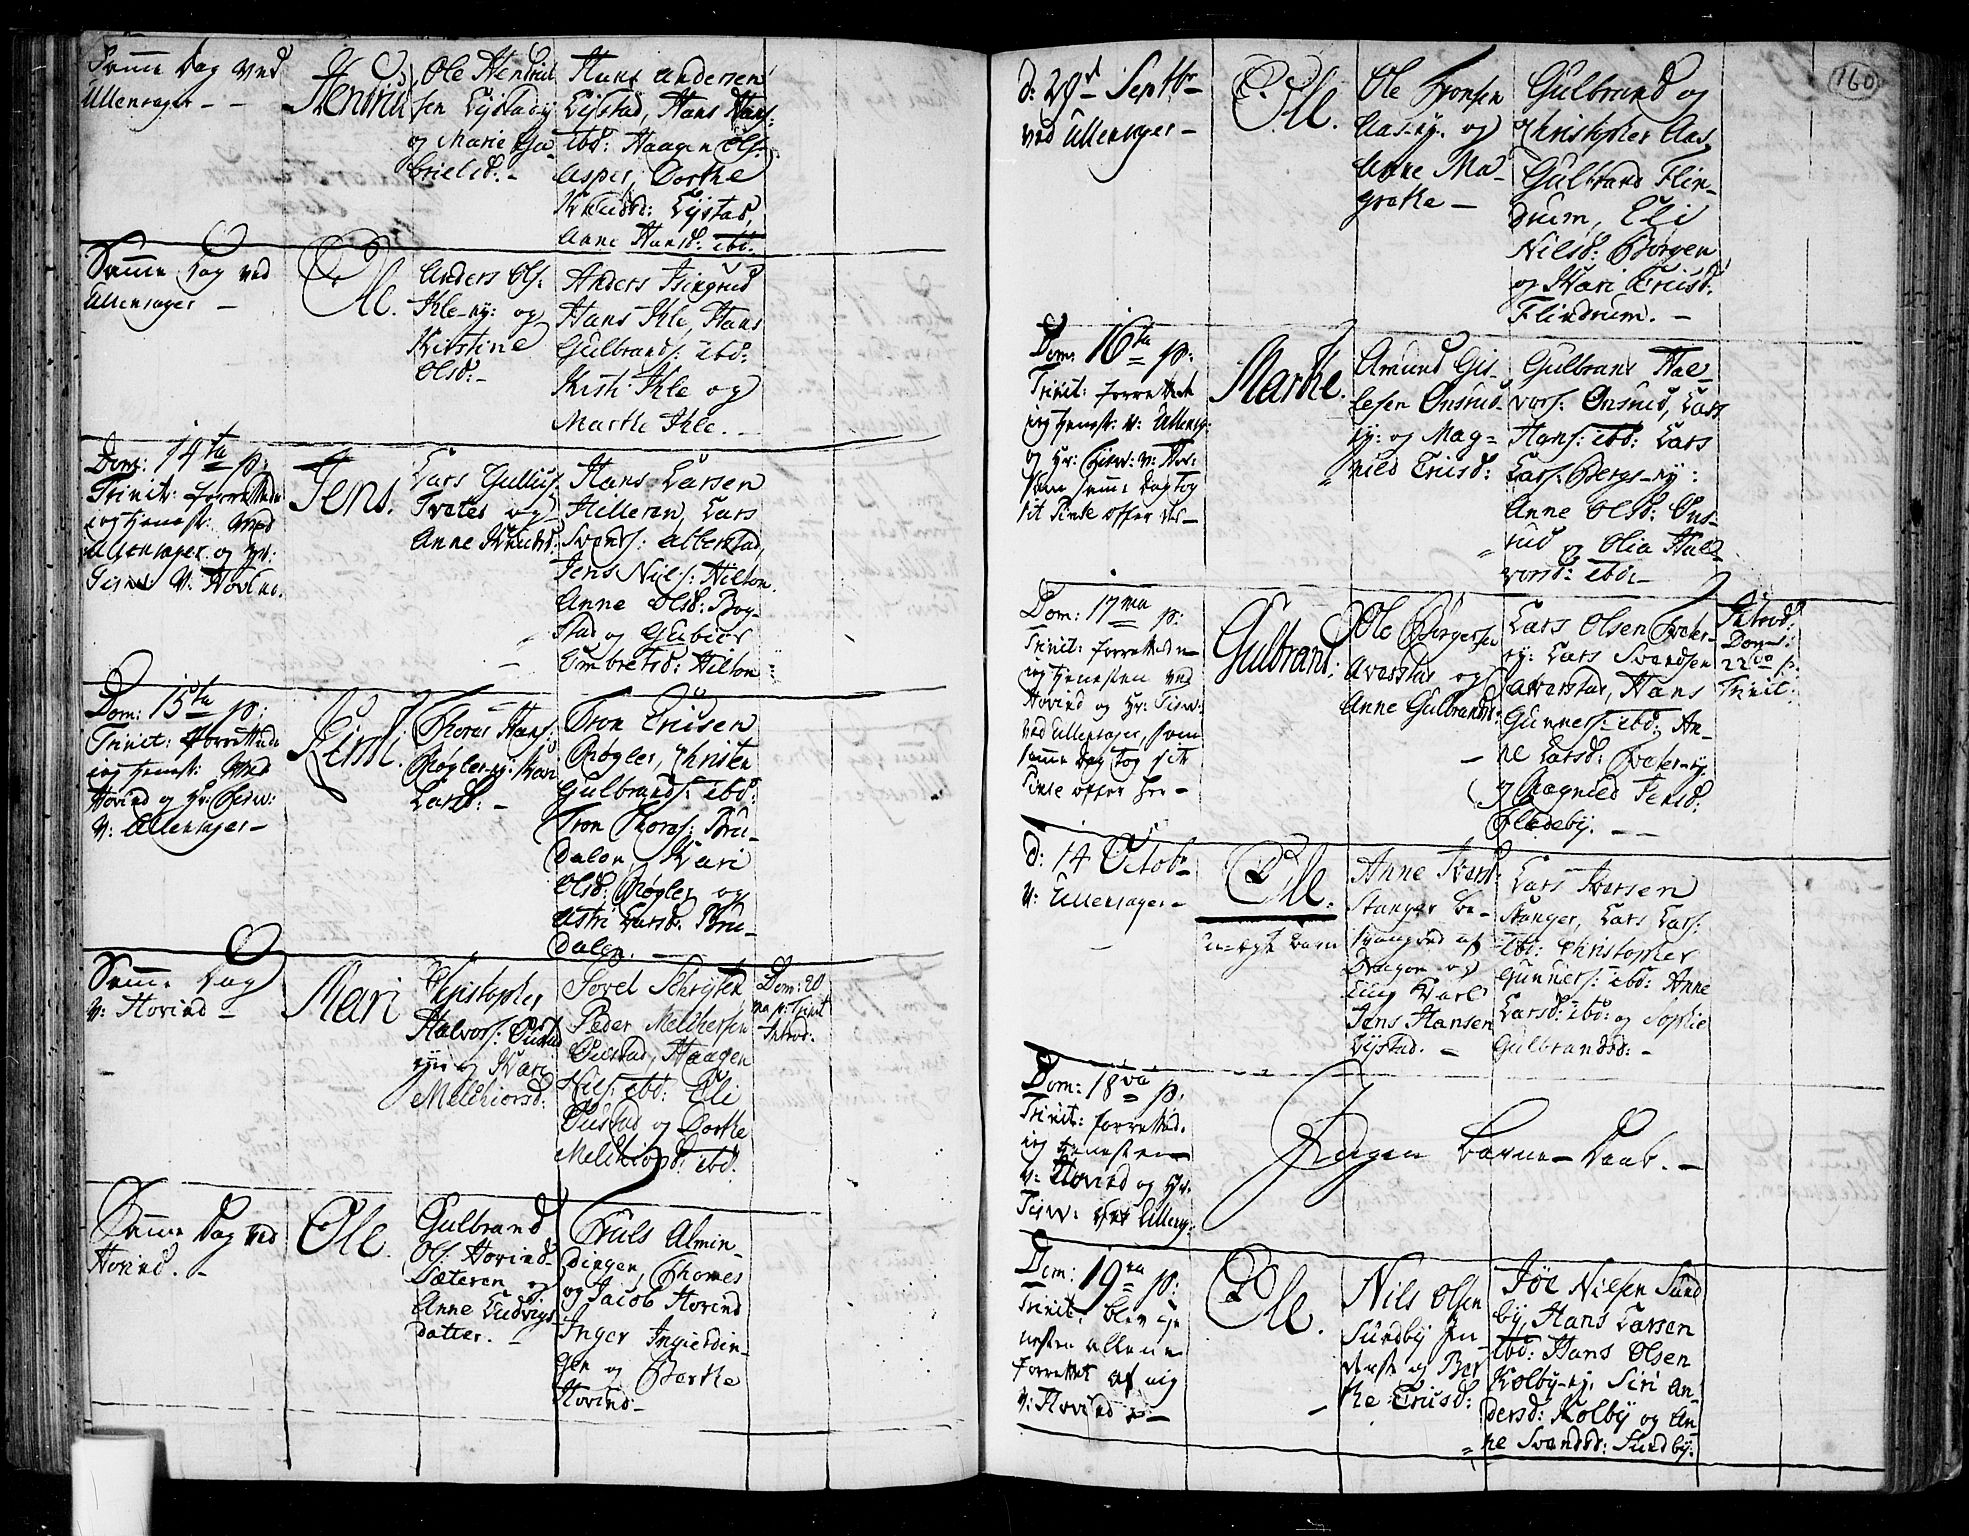 Samme Dag ved
Ullensager - -
Hendrik
Ole Hendrik
sen Lystad ej
og Marie Ga
brielsd: -
Hans Andersen
Lystad, Hans Hans:
ibd: Haagen Ols:
Asper, Dorthe
Knudsd: Lystad,
Anne Hansd: ibd:
Samme Dag ved
Ullensager -
Ole.
Anders Ols:
Ihle-ej: og
Kirstine
Olsd: -
Anders Isingrud
Hans Ihle, Hans
Gulbrands: ibd:
Kisti Ihle og
Marthe Ihle. -
Dom: 14ta p:
Trinit: forrettede
ieg tienest: ved
Ullensager og Hr:
V: Hovind.
Jens.
Lars Gullus:
Tveter og
Anne Knudsd:
Hans Larsen
Hilleren, Lars
Svends: Alberstad,
Jens Nils: Hilton
Anne Olsd: Bog-
stad og Gubiør
Embretsd: Hilton
Dom: 15ta p:
Trinit: forrettede
ieg tienest: ved
Hovind og Hr:
V: Ullensager -
Kirsti.
Thoras Hans:
Røgler-ej: Kari
Larsd: -
Tron Erusen
Røgler, Christen
Gulbrands: ibd:
Tron Thoras: Bru-
dalen, Kari
Olsd: Røgler og
Astri Larsd: Bru-
dalen. -
Samme Dag
V: Hovind -
Mari
Christopher
Halvors:
ejer og Kari
Melchiorsd:
Peder Melchersen
Haagen
Nils: ibd: Eli
og Dorthe
Melchiorsd: ibd:
Dom: 20
na p: Trinit
Introd:
Samme Dag ved
Hovind. -
Ole.
Gulbrand
Ols: Hovind-
Sæteren og
Anne Ludvigs-
datter. -
Truls Almin-
dingen, Thomes
og Jacob Hovind
Inger Ingierdin-
gen og Berthe
Hovind -
160
d: 29d Septbr
ved Ullensager -
Ole.
Ole Tronsen
Aas-ej: og
Anne Ma-
grethe -
Gulbrand og
Christopher Aas,
Gulbrand Flin-
drum, Eli
Nilsd: Borgen
og Kari Erusd:
Flindrum. -
Dom: 16ta p:
Trinit: forrettede
ieg tienest: V: Ullensag:
og Hr: V: Hov:
som samme Dag tog
sit offer
Marthe.
Amund Gis-
lesen Onsrud
ej: og Mag-
nild Erusd:
Gulbrand Hal-
vors: Onsrud, Lars
Hans: ibd: Lars
Lars: Bergs-ej:
Anne Olsd: Ons-
rud og Olia Hal-
vorsd: ibd: -
Dom: 17ma p:
Trinit: forrettede
ieg tienesten ved
Hovind og Hr:
ved Ullensager, som
samme Dag tog sit
offer her -
Gulbrand:
Ole Børgersen
Averstad og
Anne Gulbrandsd:
Lars Olsen Tveter-
ej: Lars Svendsen
Averstad, Hans
Gunners: ibd: An-
ne Larsd: Tveter-ej:
og Ragnild Jensd:
Fladeby. -
Introd:
Dom:
22do p:
Trinit:
d: 14 Octobr
V: Ullensager -
Ole.
u-ægte Barn
Anne Ivarsd:
Stanger be-
svangred af
Dragon og
Ung Karl
Jens Hansen
Lystad. -
Lars Ivarsen
Stanger, Lars Lars:
ibd: Christopher
Gunners: ibd: Anne
Larsd: ibd: og Sophie
Gulbrandsd: -
Dom: 18va p:
Trinit: forrettede
ieg tienesten
V: Hovind og Hr:
ved Ullensag:
Ingen Barne-Daab. -
Dom: 19na p:
Trinit: blev tje
nesten allene
forrettet af mig
V: Hovind -
Ole.
Nils Olsen
Sundby In-
derst og Ber
the Erusd:
Joe Nielsen Sund
by, Hans Larsen
ibd: Hans Olsen
Kolby-ej: Siri An
dersd: Kolby og An
ne Svendsd: Sundby: